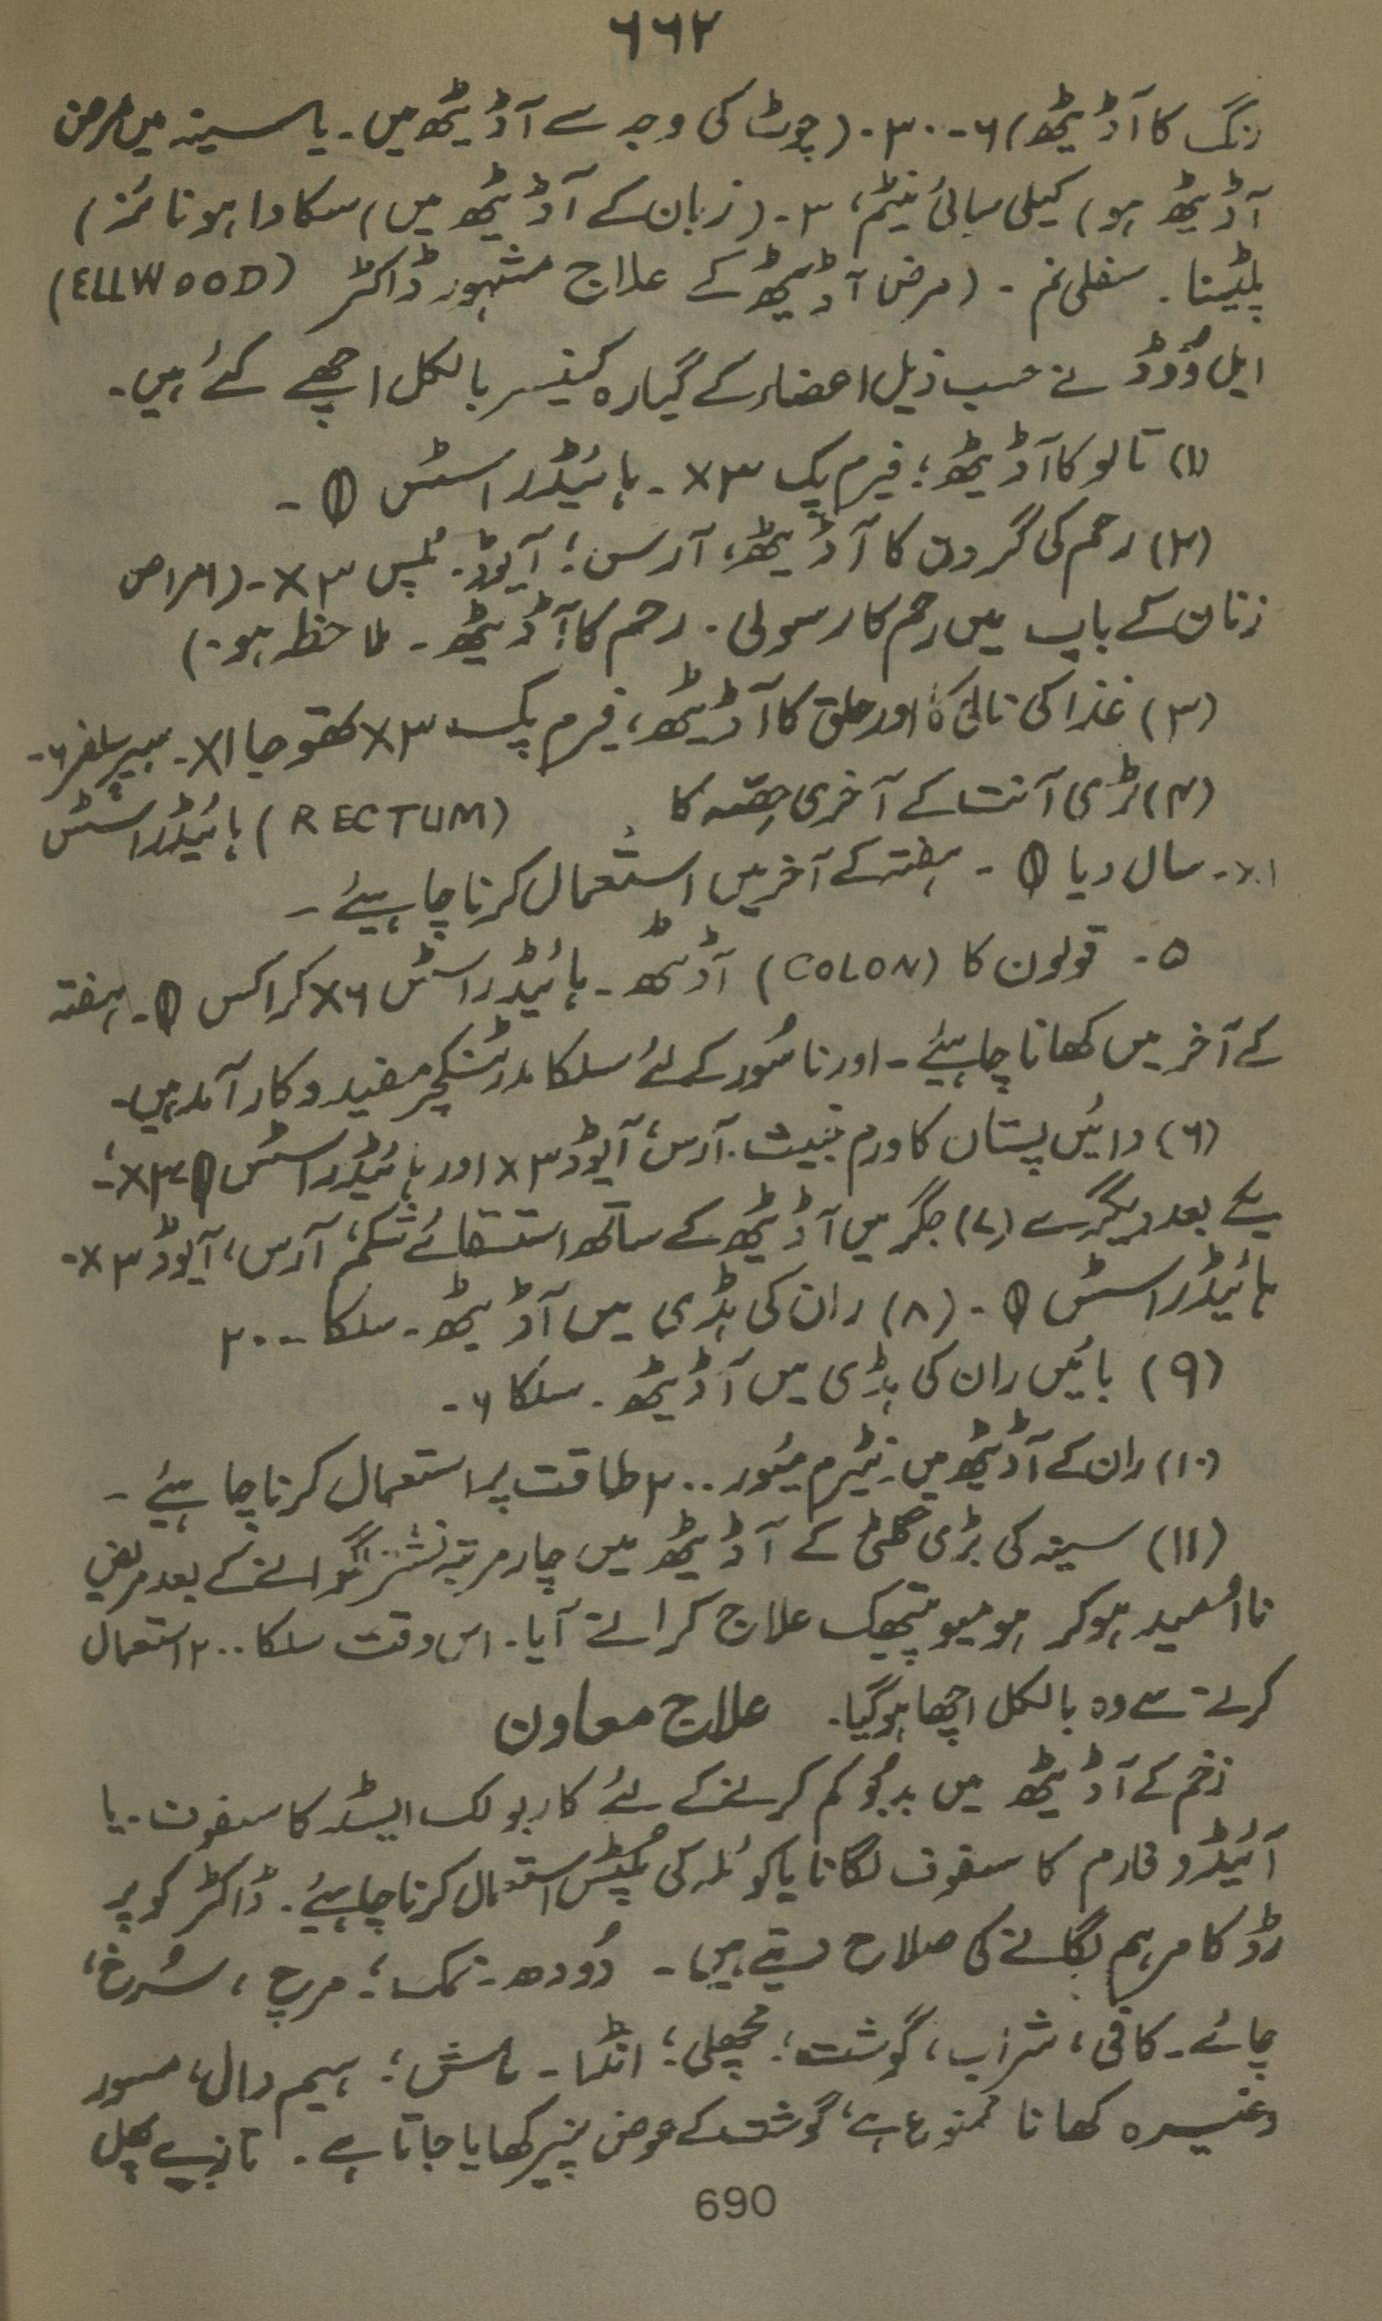 ۶۶۲
رنگ کا آڈیٹھ) ۶-۳۰- (چوٹ کی وجہ سے آڈیٹھ میں۔ یا سینہ میں مرض
آڈیٹھ ہو) کیلی سیائی نیٹم، ۳- (زبان کے آڈیٹھ میں) سکادا ہونائمز)
پلٹینا۔ سفلی نم۔ (مرض آڈیٹھ کے علاج مشہور ڈاکٹر (ELLWOOD)
ایل وُوڈ نے حسب ذیل اعضاء کے گیارہ کینسر بالکل اچھے کئے ہیں۔
(۱) تالو کا آڈیٹھ؛ فیرم پک ۳x۔ ہائیڈراسٹس θ۔
(۲) رحم کی گردن کا آڈیٹھ، آرس؛ آیوڈ۔ پلمبس ۳x۔ (امراض
زنان کے باب میں رحم کا رسولی۔ رحم کا آڈیٹھ۔ ملاحظہ ہو۔)
(۳) غذا کی نالی کا اور حلق کا آڈیٹھ، فیرم پک ۳x کھتوجیا ۱x۔ ہیپر سلفر ۶۔
(۴) بڑی آنت کے آخری حصّہ کا (RECTUM) ہائیڈراسٹس
۱x۔ سال دیا θ۔ ہفتہ کے آخر میں استعمال کرنا چاہیئے۔
۵۔ قولون کا (COLON) آڈیٹھ۔ ہائیڈراسٹس ۶x کراکس θ۔ ہفتہ
کے آخر میں کھانا چاہیئے۔ اور ناسُور کے لئے سلکا مدر ٹنکچر مفید و کارآمد ہیں۔
(۶) دائیں پستان کا ورم خبیث۔ آرس؛ آیوڈ ۳x اور ہائیڈراسٹس θ ۳x؛
یکے بعد دیگرے (۷) جگر میں آڈیٹھ کے ساتھ استسقائے شکم، آرس، آیوڈ ۳x۔
ہائیڈراسٹس θ۔ (۸) ران کی ہڈی میں آڈیٹھ۔ سلکا ۲۰۰
(۹) بائیں ران کی ہڈی میں آڈیٹھ۔ سلکا ۶۔
(۱۰) ران کے آڈیٹھ میں۔ نیٹرم میُور ۲۰۰ طاقت پر استعمال کرنا چاہیئے۔
(۱۱) سینہ کی بڑی گلٹی کے آڈیٹھ میں چار مرتبہ نشتر لگوانے کے بعد مریض
نااُمید ہوکر ہومیوپیتھک علاج کرانے آیا۔ اس وقت سلکا ۲۰۰ استعمال
کرنے سے وہ بالکل اچھا ہوگیا۔ علاج معاون
زخم کے آڈیٹھ میں بدبُو کم کرنے کے لئے کاربولک ایسڈ کا سفوف۔ یا
آئیڈوفارم کا سفوف لگانا یا کوئلہ کی پُلٹس استعمال کرنا چاہیئے۔ ڈاکٹر کوپر
رڈ کا مرہم لگانے کی صلاح دیتے ہیں۔ دُودھ۔ نمک؛ مرچ، سُرخ،
چائے۔ کافی، شراب، گوشت؛ مچھلی؛ انڈا۔ ماش؛ ہیم دال، مسور
وغیرہ کھانا ممنوع ہے، گوشت کے عوض پنیر کھایا جاتا ہے۔ تازے پھل
690